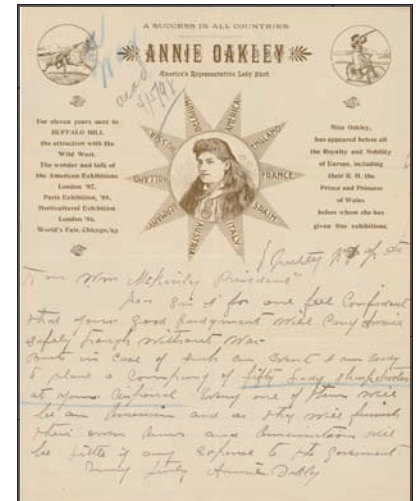 A SUCCESS IN ALL COUNTRIES
ANNIE OAKLEY
America's Representative Lady Shot
acad
4/5/98
For eleven years next to
BUFFALO BILL
the attraction with the
Wild West.
The wonder and talk of
the American Exhibitions
London '87,
Paris Exposition, '89,
Horticultural Exhibition
London '92,
World's Fair, Chicago, '93
BELGIUM
AMERICA
ENGLAND
FRANCE
SPAIN
ITALY
AUSTRIA
GERMANY
HOLLAND
RUSSIA
Miss Oakley,
has appeared before all
the Royalty and Nobility
of Europe, including
their R. H. the
Prince and Princess
of Wales
before whom she has
given five exhibitions.
Wm McKinley President
Dear Sir I for one feel Confident
that your good judgment will carry America
safely through without War
But in case of such an Event I am ready
to place a Company of fifty lady sharpshooters
at your disposal Every one of them will
be an American and as they will furnish
their own Arms and Ammunition will
be little if any expense to the Government
Very Truly Annie Oakley